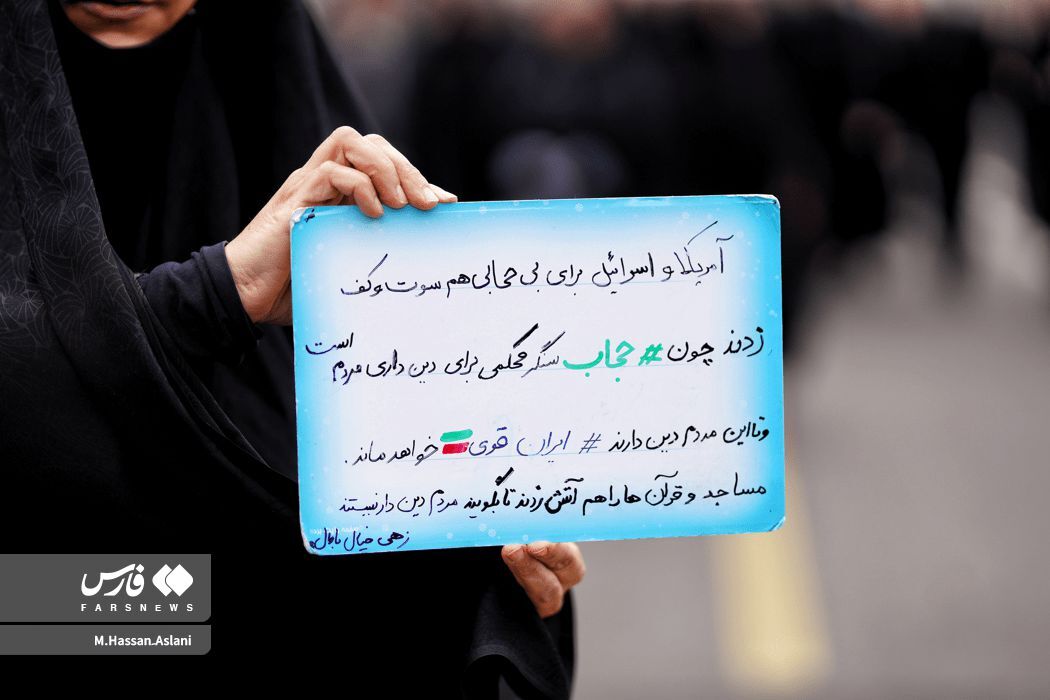 آمریکا و اسرائیل برای بی حجابی هم سوت و کف
زدند چون # حجاب سنگر محکمی برای دین داری مردم است
و تا این مردم دین دارند # ایران قوی خواهد ماند.
مساجد و قرآن ها را هم آتش زدند تا بگویند مردم دین دار نیستند
زهی خیال باطل
فارس
FARSNEWS
M.Hassan.Aslani